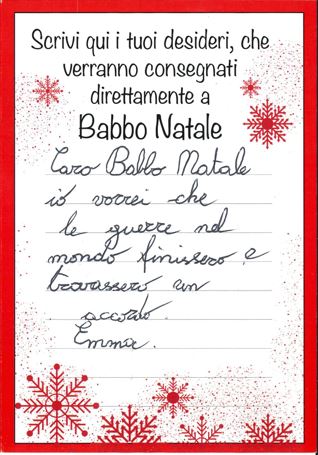 Scrivi qui i tuoi desideri, che
verranno consegnati
direttamente a
Babbo Natale
Caro Babbo Natale
io vorrei che
le guerre nel
mondo finissero e
trovassero un
accordo.
Emma.